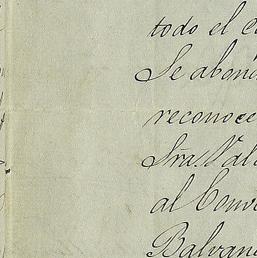 todo el c
Se abon
reconoce
Sra. Val
al Conv
Balvan